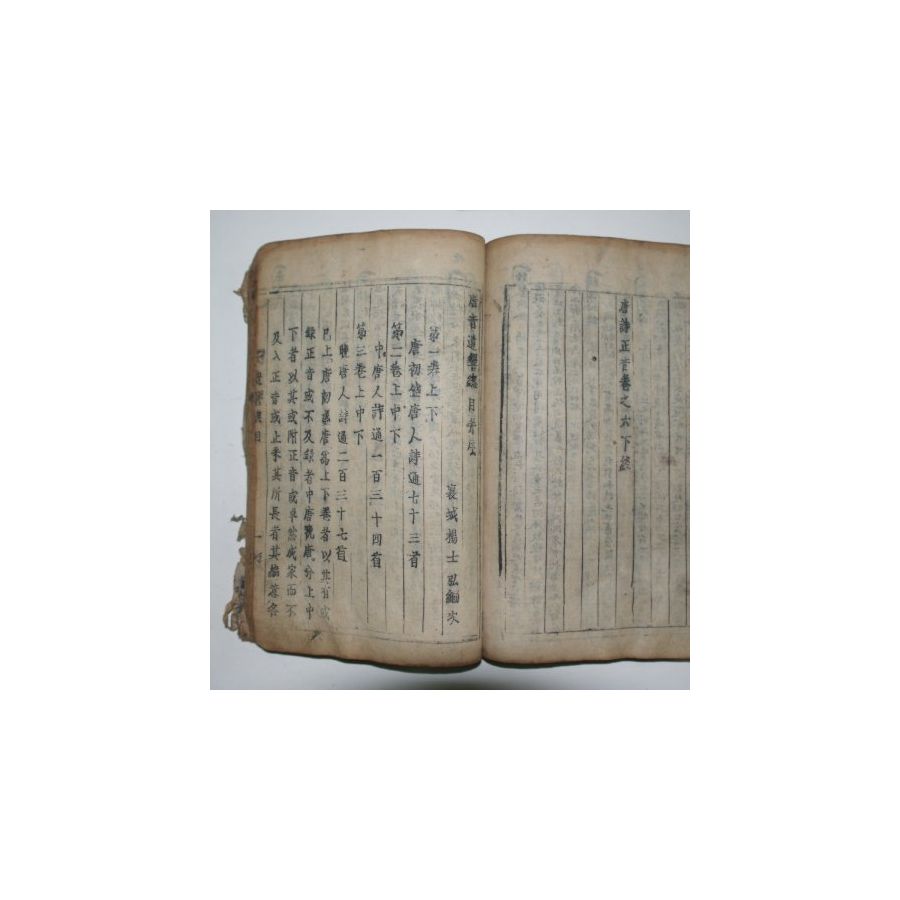 唐詩正音卷之六下終
唐音遺響總目并序
襄城楊士弘編次
第一卷上下
唐初盛唐人詩通七十三首
第二卷上中下
中唐人詩通一百三十四首
第三卷上中下
晚唐人詩通二百三十七首
已上唐初盛唐分上下卷者以
錄正音或不及錄者中唐晚唐分上中
下者以其或附正音或卓然成家而不
及入正音或止采其所長者其